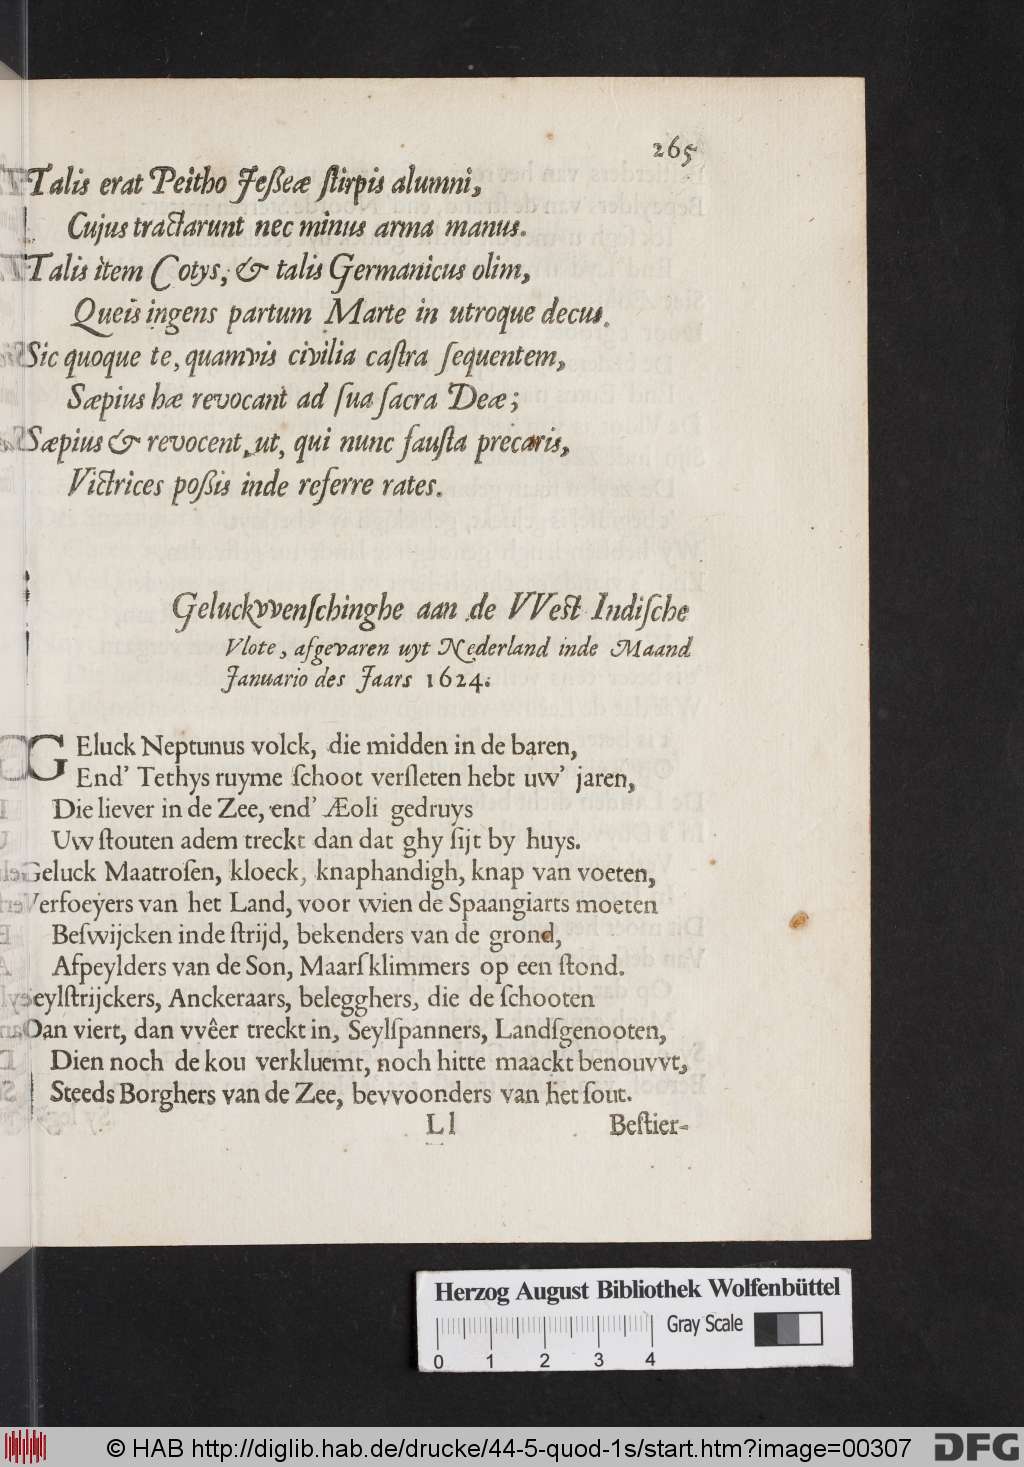 265
Talis erat Peitho Jeßeæ ſtirpis alumni,
Cujus tractarunt nec minus arma manus.
Talis item Cotys, & talis Germanicus olim,
Queis ingens partum Marte in utroque decus.
Sic quoque te, quamvis civilia caſtra ſequentem,
Sæpius hæ revocant ad ſua ſacra Deæ;
Sæpius & revocent, ut, qui nunc fauſta precaris,
Victrices poßis inde referre rates.
Geluckvvenſchinghe aan de VVeſt Indiſche
Vlote, afgevaren uyt Nederland inde Maand
Januario des Jaars 1624.
GEluck Neptunus volck, die midden in de baren,
End' Tethys ruyme ſchoot verſleten hebt uw' jaren,
Die liever in de Zee, end' Æoli gedruys
Uw ſtouten adem treckt dan dat ghy ſijt by huys.
Geluck Maatroſen, kloeck, knaphandigh, knap van voeten,
Verfoeyers van het Land, voor wien de Spaangiarts moeten
Beſwijcken inde ſtrijd, bekenders van de grond,
Afpeylders van de Son, Maarſklimmers op een ſtond.
Seylſtrijckers, Anckeraars, belegghers, die de ſchooten
Dan viert, dan vvêer treckt in, Seylſpanners, Landſgenooten,
Dien noch de kou verkluemt, noch hitte maackt benouvvt,
Steeds Borghers van de Zee, bevvoonders van het ſout.
Ll Beſtier-
Herzog August Bibliothek Wolfenbüttel
Gray Scale
0 1 2 3 4
© HAB http://diglib.hab.de/drucke/44-5-quod-1s/start.htm?image=00307
DFG